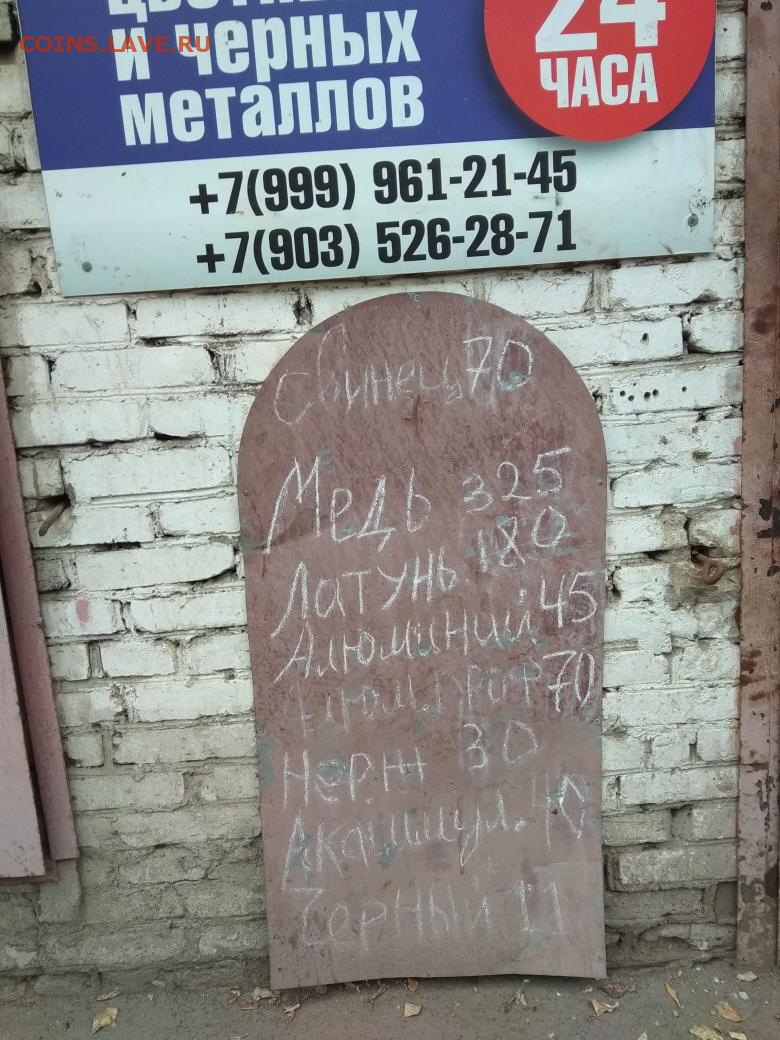 COINS.LAVE.RU
цветных
и черных
металлов
24
ЧАСА
+7(999) 961-21-45
+7(903) 526-28-71
Свинець 70
Медь 325
Латунь 180
Алюминий 45
Алюм. проф 70
Нерж 30
Аккумул. 40
Черный 11